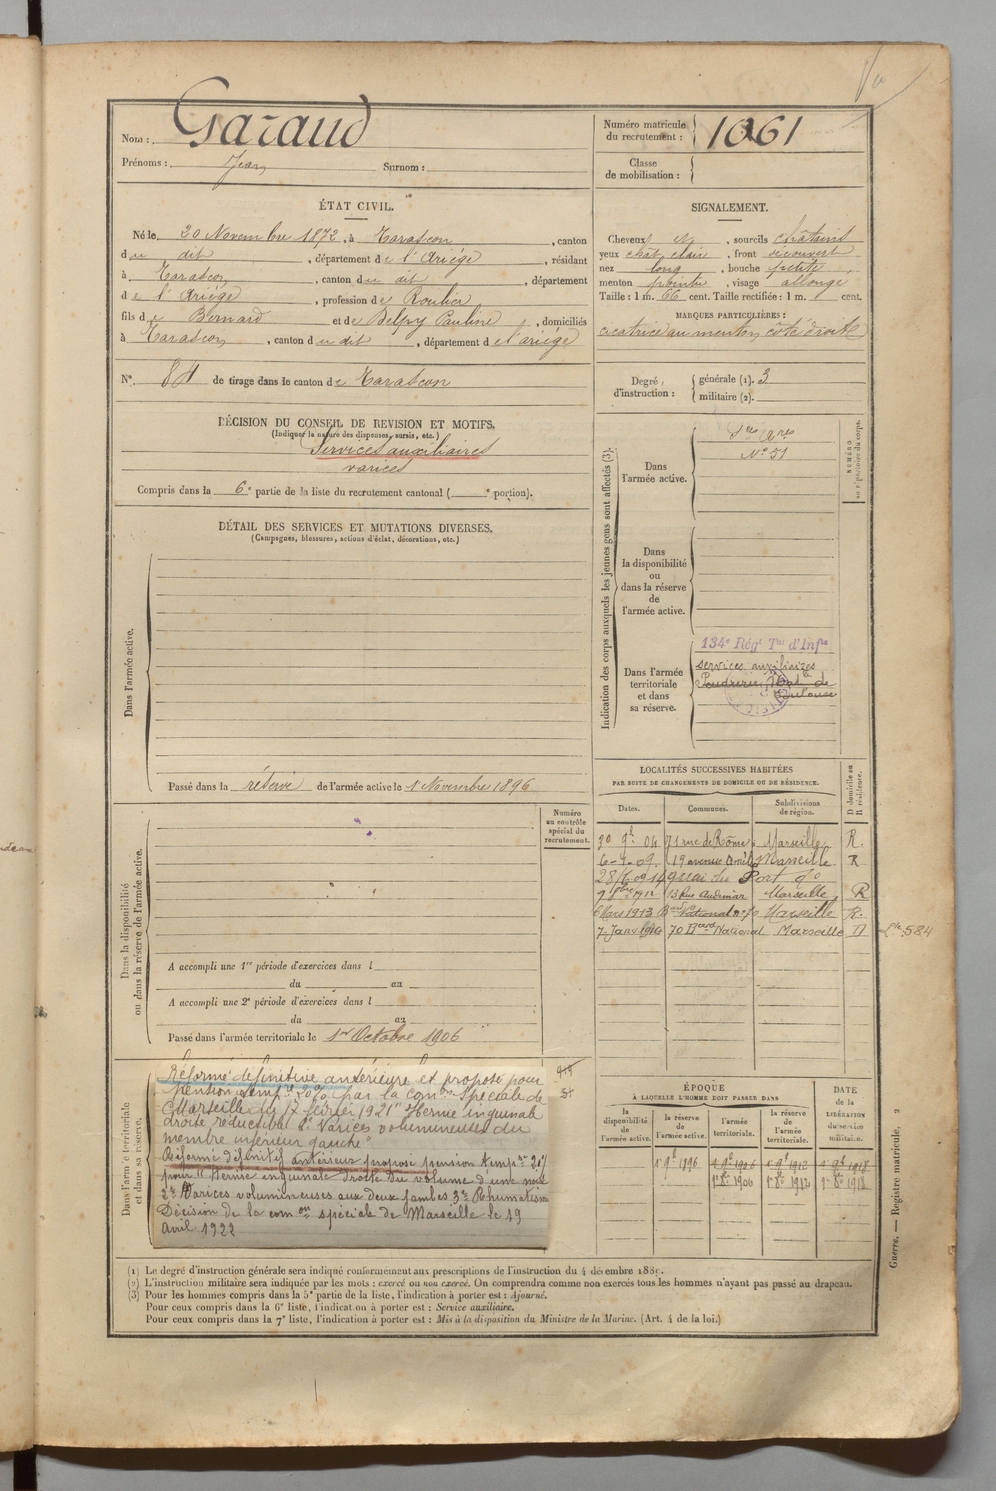 Nom : Garaud
Prénoms : Jean Surnom :
Numéro matricule du recrutement : 1061
Classe de mobilisation :
ÉTAT CIVIL.
Né le 20 Novembre 1872, à Tarascon, canton
du dit, département de l'Ariége, résidant
à Tarascon, canton du dit, département
de l'Ariége, profession de Roulier
fils de Bernard et de Belpy Pauline, domiciliés
à Tarascon, canton du dit, département de l'ariége
N° 84 de tirage dans le canton de Tarascon
SIGNALEMENT.
Cheveux N, sourcils châtains
yeux chât clair, front découvert
nez long, bouche petite,
menton pointu, visage allongé
Taille : 1 m. 66 cent. Taille rectifiée : 1 m. cent.
MARQUES PARTICULIÈRES :
cicatrice au menton côté droit
Degré d'instruction : générale (1). 3
militaire (2).
DÉCISION DU CONSEIL DE REVISION ET MOTIFS.
(Indiquer la nature des dispenses, sursis, etc.)
Services auxiliaires
varices
Compris dans la 6e partie de la liste du recrutement cantonal ( e portion).
DÉTAIL DES SERVICES ET MUTATIONS DIVERSES.
(Campagnes, blessures, actions d'éclat, décorations, etc.)
Dans l'armée active.
Passé dans la réserve de l'armée active le 1 Novembre 1896
Indication des corps auxquels les jeunes gens sont affectés (3).
NUMÉRO au répertoire du corps.
Dans l'armée active.
N° 51
Dans la disponibilité ou dans la réserve de l'armée active.
Dans l'armée territoriale et dans sa réserve.
134e Régt Tal d'Infie
services auxiliaires
Poudrerie Natle de
Toulouse
Dans la disponibilité ou dans la réserve de l'armée active.
Numéro au contrôle spécial du recrutement.
A accompli une 1re période d'exercices dans l
du au
A accompli une 2e période d'exercices dans l
du au
Passé dans l'armée territoriale le 1er Octobre 1906
LOCALITÉS SUCCESSIVES HABITÉES
PAR SUITE DE CHANGEMENTS DE DOMICILE OU DE RÉSIDENCE.
Dates. Communes. Subdivisions de région. D domicile ou R résidence.
30 9b 04 71 rue de Rome Marseille R.
6-7-09. 19 avenue Marseille R
quai du Port do
1912 13 Rue Audimar Marseille R
6 Mars 1913 Bard National n° 70 Marseille R.
7 Janv 1914 70 Bard National Marseille D
584
Dans l'armée territoriale et dans sa réserve.
Réformé définitive antérieure et proposé pour
pension tempre 20% par la comon spéciale de
Marseille du 17 février 1921 "Hernie inguinale
droite réductible 2° Varices volumineuses du
membre inférieur gauche"
Réformé définitif antérieur proposé pension tempre
pour 1° Hernie inguinale droite du volume d'une noix
2° Varices volumineuses aux deux jambes 3° Rhumatisme
Décision de la comon spéciale de Marseille le 19
Avril 1922
ÉPOQUE
A LAQUELLE L'HOMME DOIT PASSER DANS
la disponibilité de l'armée active. la réserve de l'armée active. l'armée territoriale. la réserve de l'armée territoriale.
DATE de la LIBÉRATION du service militaire.
1er 9b 1896 1er 9b 1906 1er 9b 1912 1er 9b 1918
1er 8b 1906 1er 8b 1912 1er 8b 1918
(1) Le degré d'instruction générale sera indiqué conformément aux prescriptions de l'instruction du 4 décembre 1889.
(2) L'instruction militaire sera indiquée par les mots : exercé ou non exercé. On comprendra comme non exercés tous les hommes n'ayant pas passé au drapeau.
(3) Pour les hommes compris dans la 5e partie de la liste, l'indication à porter est : Ajourné.
Pour ceux compris dans la 6e liste, l'indication à porter est : Service auxiliaire.
Pour ceux compris dans la 7e liste, l'indication à porter est : Mis à la disposition du Ministre de la Marine. (Art. 4 de la loi.)
Guerre. — Registre matricule. 2